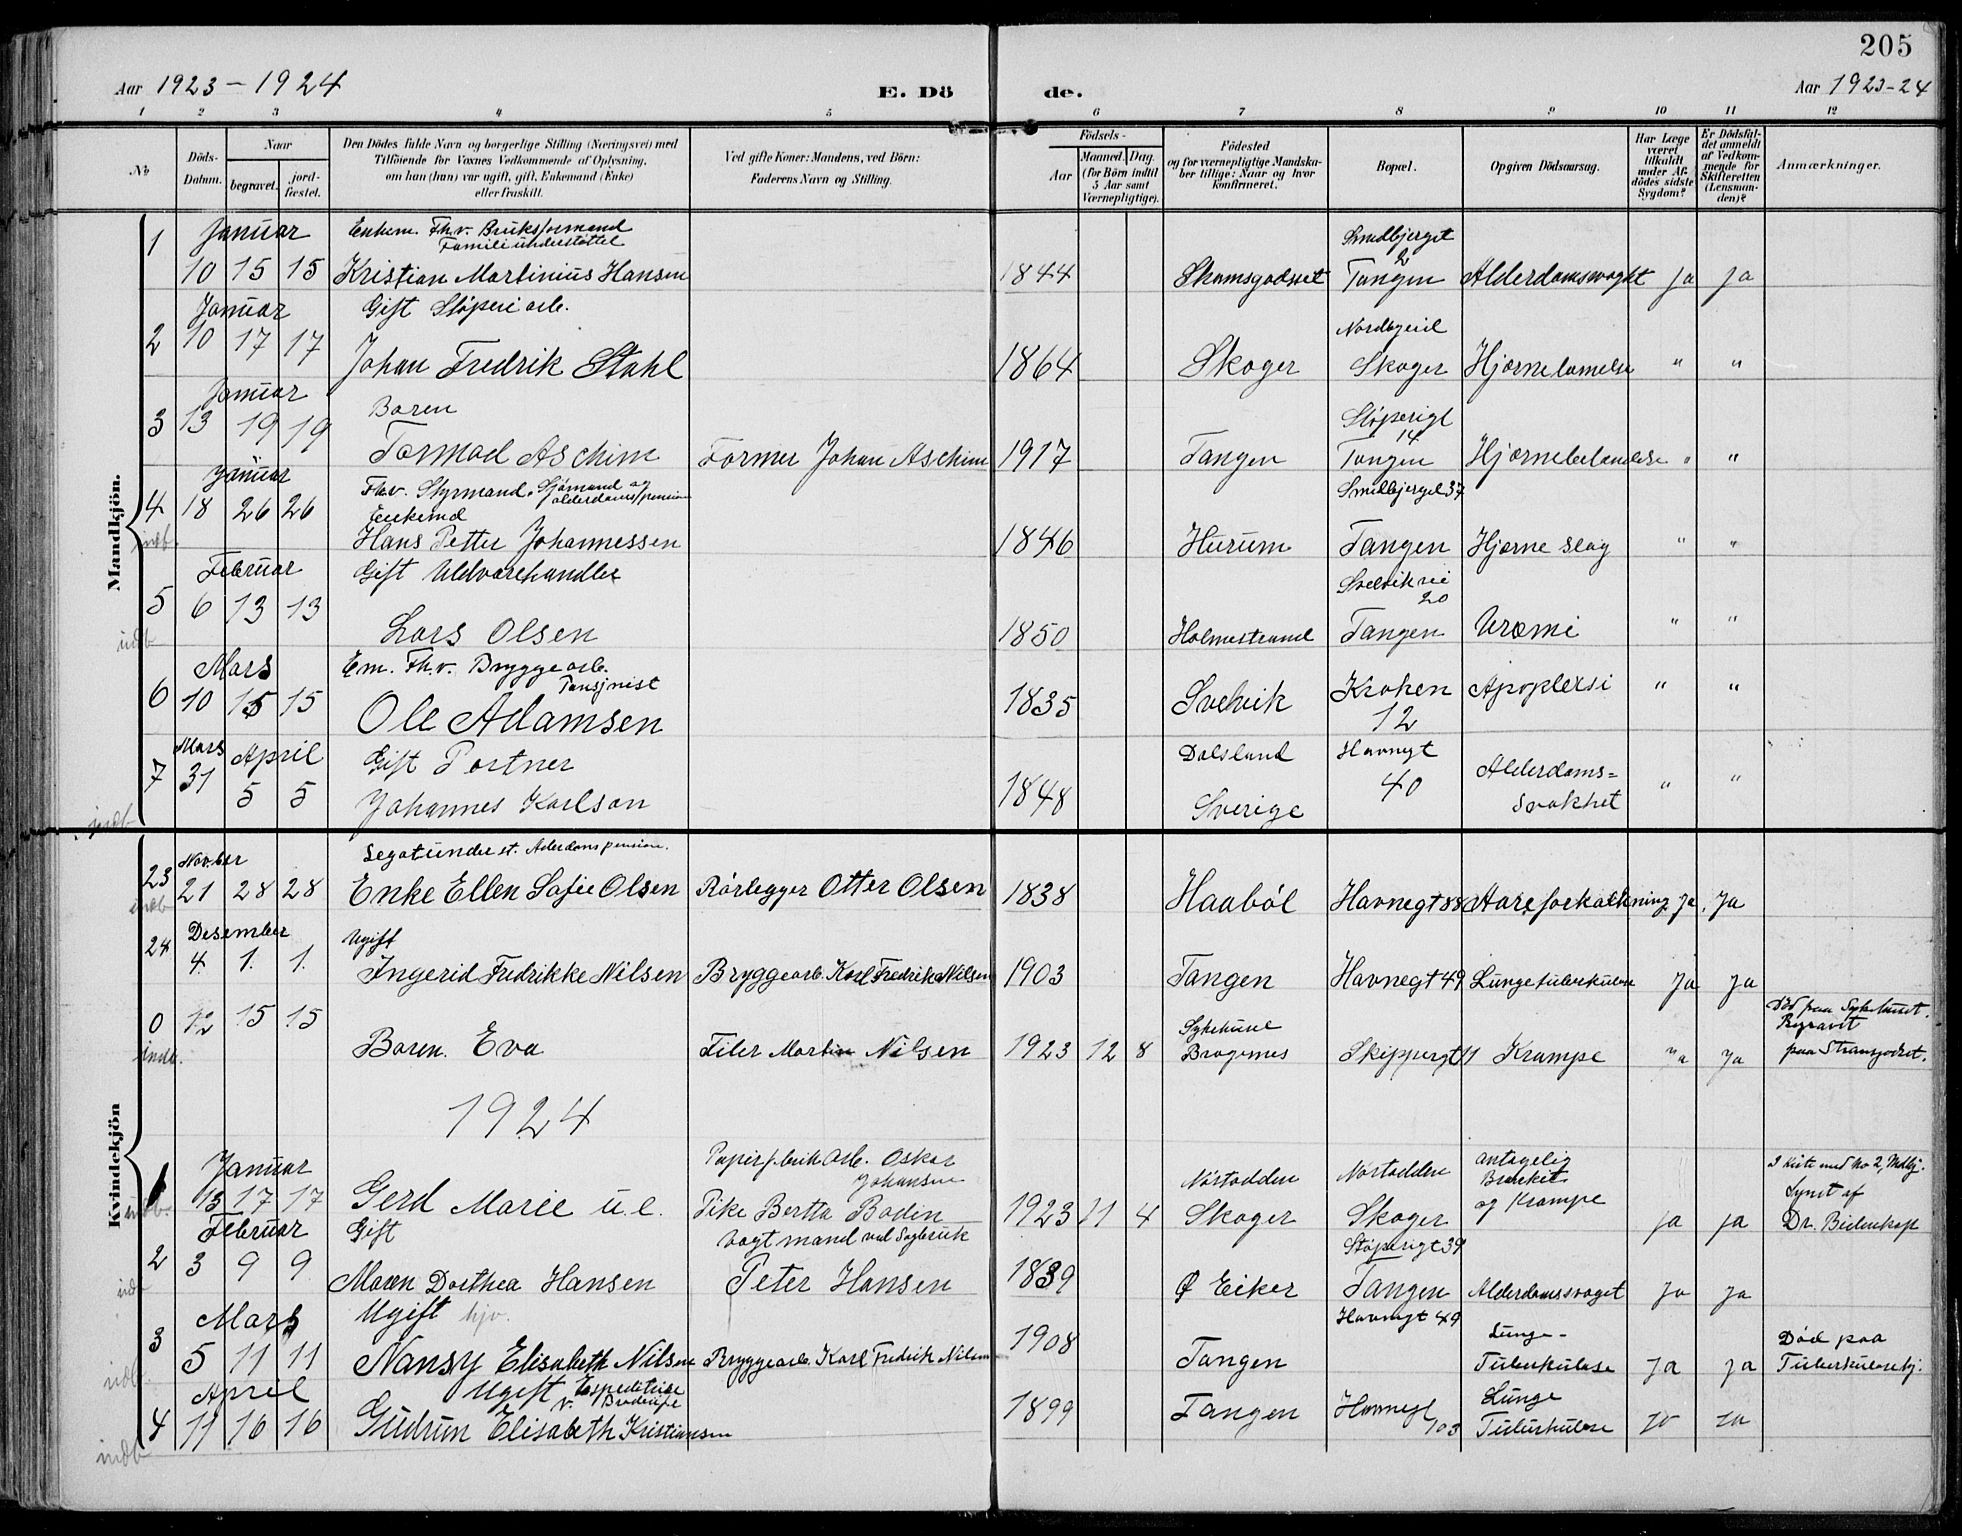 205
Aar 1923 – 1924
E. Dö de.
Aar 1923-24
1 2 3 4 5 6 7 8 9 10 11 12
No
Döds-Datum.
Naar
begravet.
jord-fæstet.
Den Dödes fulde Navn og borgerlige Stilling (Næringsvei) med
Tilföiende for Voxnes Vedkommende af Oplysning,
om han (hun) var ugift, gift, Enkemand (Enke)
eller fraskilt.
Ved gifte Koner: Mandens, ved Börn:
Faderens Navn og Stilling.
Födsels-
Aar
Maaned. Dag.
(for Börn indtil
5 Aar samt
Værnepligtige).
Födested
og for værnepligtige Mandska-
ber tillige: Naar og hvor
konfirmeret.
Bopæl.
Opgiven Dödsaarsag.
Har Læge
været
tilkaldt
under Af-
dödes sidste
Sygdom?
Er Dödsfal-
det anmeldt
af Vedkom-
mende for
Skifteretten
(Lensman-
den)?
Anmærkninger.
Mandkjön.
1 Januar Enkem. Fhv. Bruksformand
Familieunderstøttet
10 15 15 Kristian Martinius Hansen 1844 Smedbjerget
2
Tangen Ja Ja
Januar Gift Støperiarb.
2 10 17 17 Johan Fredrik Stahl 1864 Skoger Skoger " "
Januar Baren
3 13 19 19 Tormod Aschim Former Johan Aschim 1917 Tangen Støperigt
14
Tangen " "
Januar Fhv. Styrmand, Sjømand og
alderdomspension
Enkemd
4 18 26 26 Hans Petter Johannessen 1846 Hurum Smedbjerget 37
Tangen Hjerne slag " "
indb.
Februar Gift Uldvarehandler
5 6 13 13 Lars Olsen 1850 Holmestrand Svelvikvei
20
Tangen Uræmi " "
indb
Mars Em. Fhv. Bryggearb.
6 10 15 15 Ole Adamsen 1835 Svelvik Kroken
12 Apoplexsi " "
Mars April Gift Portner
7 31 5 5 Johannes Karlson 1848 Dalsland
Sverige Havnegt
40 Alderdoms=
svakhet " "
indb
Kvindekjön
Nov.ber
23 21 28 28 Enke Ellen Sofie Olsen Rørlegger Otter Olsen 1838 Haabøl Havnegt 88 Aareforkalkning Ja Ja
indb
Desember Ugift
24 4. 1. 1. Ingerid Fredrikke Nilsen Bryggearb. Karl Fredrik Nilsen 1903 Tangen Havnegt 49 Lungetuberkulose Ja Ja
0 12 15 15 Baren Eva Filer Martin Nilsen 1923 12 8 Sykehuset
Bragernes Skippergt 11 Krampe Ja Ja
Død paa Sykehuset.
Begravet
paa Strømsgodset.
indb.
1924
Januar
1 13 17 17 Gerd Marie u.e. Papirfabrikarb. Oskar
Johansen
Pike Bertha Bodin 1923 11 4 Nøstodden
Skoger Nøstodden
Skoger antagelig
Bronkit
og Krampe Ja Ja
I kiste med No 2, Mdkj.
Synet af
indb.
Februar Gift
2 3 9 9 Maren Dorthea Hansen Vagtmand ved Sagbruk
Peter Hansen 1839 Ø Eiker Støperigt 39
Tangen Alderdomssvaget Ja Ja
indb
Mars Ugift hjv.
3 5 11 11 Nansy Elisabeth Nilsen Bryggearb. Karl Fredrik Nilsen 1908 Tangen Havnegt 49 Lunge-
Tuberkulose Ja Ja
Død paa
Tuberkulosehj.
indb.
April Ugift Espeditrise
4 11 16 16 Gudrun Elisabeth Kristiansen 1899 Tangen Havnegt
103 Lunge
Tuberkulose Ja Ja
indb